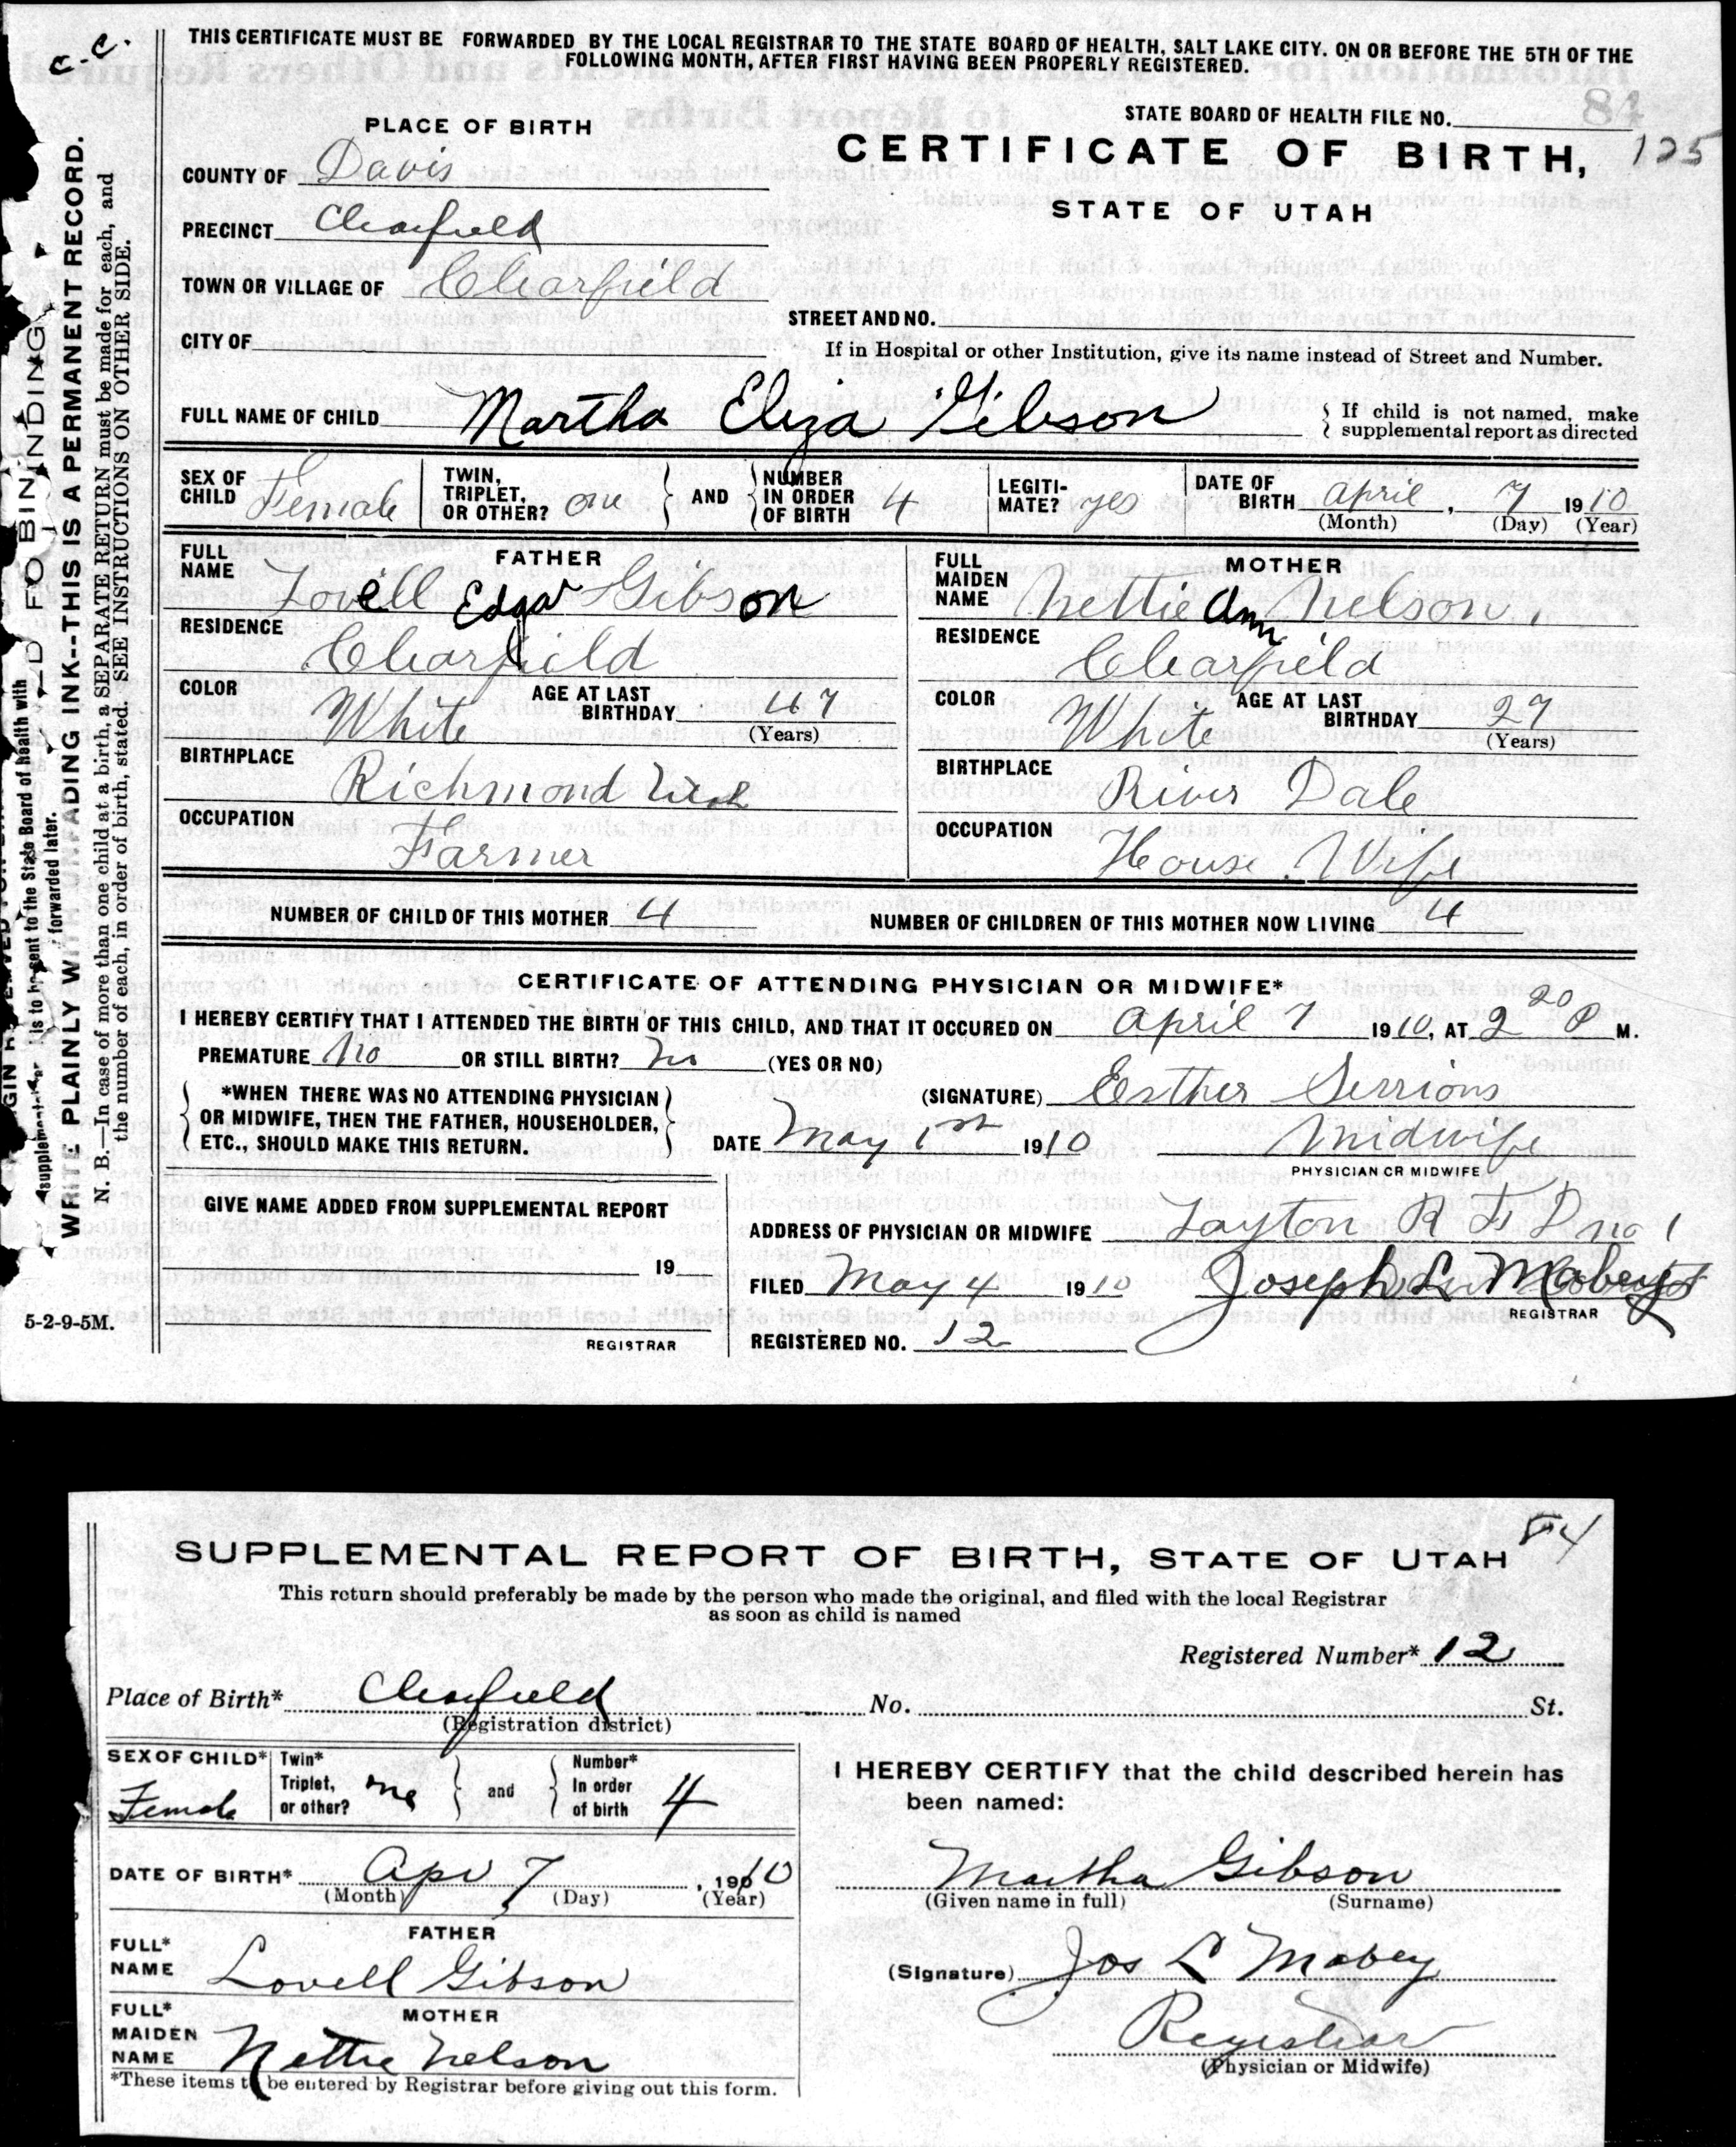 c.c.
THIS CERTIFICATE MUST BE FORWARDED BY THE LOCAL REGISTRAR TO THE STATE BOARD OF HEALTH, SALT LAKE CITY. ON OR BEFORE THE 5TH OF THE
FOLLOWING MONTH, AFTER FIRST HAVING BEEN PROPERLY REGISTERED.
84
STATE BOARD OF HEALTH FILE NO.
125
PLACE OF BIRTH
CERTIFICATE OF BIRTH,
STATE OF UTAH
COUNTY OF Davis
PRECINCT Clearfield
TOWN OR VILLAGE OF Clearfield
STREET AND NO.
CITY OF
If in Hospital or other Institution, give its name instead of Street and Number.
FULL NAME OF CHILD Martha Eliza Gibson
If child is not named, make
supplemental report as directed
SEX OF CHILD Female
TWIN, TRIPLET, OR OTHER? one
AND NUMBER IN ORDER OF BIRTH 4
LEGITI-MATE? yes
DATE OF BIRTH April, 7 1910
(Month) (Day) (Year)
FATHER
FULL NAME Lovell Edgar Gibson
RESIDENCE Clearfield
COLOR White AGE AT LAST BIRTHDAY 47
(Years)
BIRTHPLACE Richmond Utah
OCCUPATION Farmer
MOTHER
FULL MAIDEN NAME Nettie Ann Nelson
RESIDENCE Clearfield
COLOR White AGE AT LAST BIRTHDAY 27
(Years)
BIRTHPLACE River Dale
OCCUPATION House Wife
NUMBER OF CHILD OF THIS MOTHER 4 NUMBER OF CHILDREN OF THIS MOTHER NOW LIVING 4
CERTIFICATE OF ATTENDING PHYSICIAN OR MIDWIFE*
I HEREBY CERTIFY THAT I ATTENDED THE BIRTH OF THIS CHILD, AND THAT IT OCCURED ON April 7 1910, AT 2 20 P M.
PREMATURE No OR STILL BIRTH? No (YES OR NO)
*WHEN THERE WAS NO ATTENDING PHYSICIAN
OR MIDWIFE, THEN THE FATHER, HOUSEHOLDER,
ETC., SHOULD MAKE THIS RETURN.
(SIGNATURE) Esther Sessions
DATE May 1st 1910 Midwife
PHYSICIAN OR MIDWIFE
GIVE NAME ADDED FROM SUPPLEMENTAL REPORT
19
REGISTRAR
ADDRESS OF PHYSICIAN OR MIDWIFE Layton R F D no 1
FILED May 4 1910 Joseph L. Mabey
REGISTRAR
REGISTERED NO. 12
supplemental is to be sent to the State Board of health with
forwarded later.
WRITE PLAINLY WITH UNFADING INK--THIS IS A PERMANENT RECORD.
N. B.—In case of more than one child at a birth, a SEPARATE RETURN must be made for each, and
the number of each, in order of birth, stated. SEE INSTRUCTIONS ON OTHER SIDE.
5-2-9-5M.
84
SUPPLEMENTAL REPORT OF BIRTH, STATE OF UTAH
This return should preferably be made by the person who made the original, and filed with the local Registrar
as soon as child is named
Registered Number* 12
Place of Birth* Clearfield No. St.
(Registration district)
SEX OF CHILD* Female
Twin* Triplet, or other? one
and Number* In order of birth 4
DATE OF BIRTH* Apr 7, 1910
(Month) (Day) (Year)
FATHER
FULL* NAME Lovell Gibson
MOTHER
FULL* MAIDEN NAME Nettie Nelson
*These items to be entered by Registrar before giving out this form.
I HEREBY CERTIFY that the child described herein has
been named:
Martha Gibson
(Given name in full) (Surname)
(Signature) Jos L Mabey
Registrar
(Physician or Midwife)